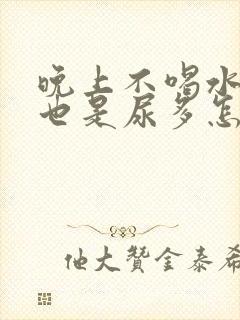 晚上不喝水
也是尿多怎
他大赞金泰希